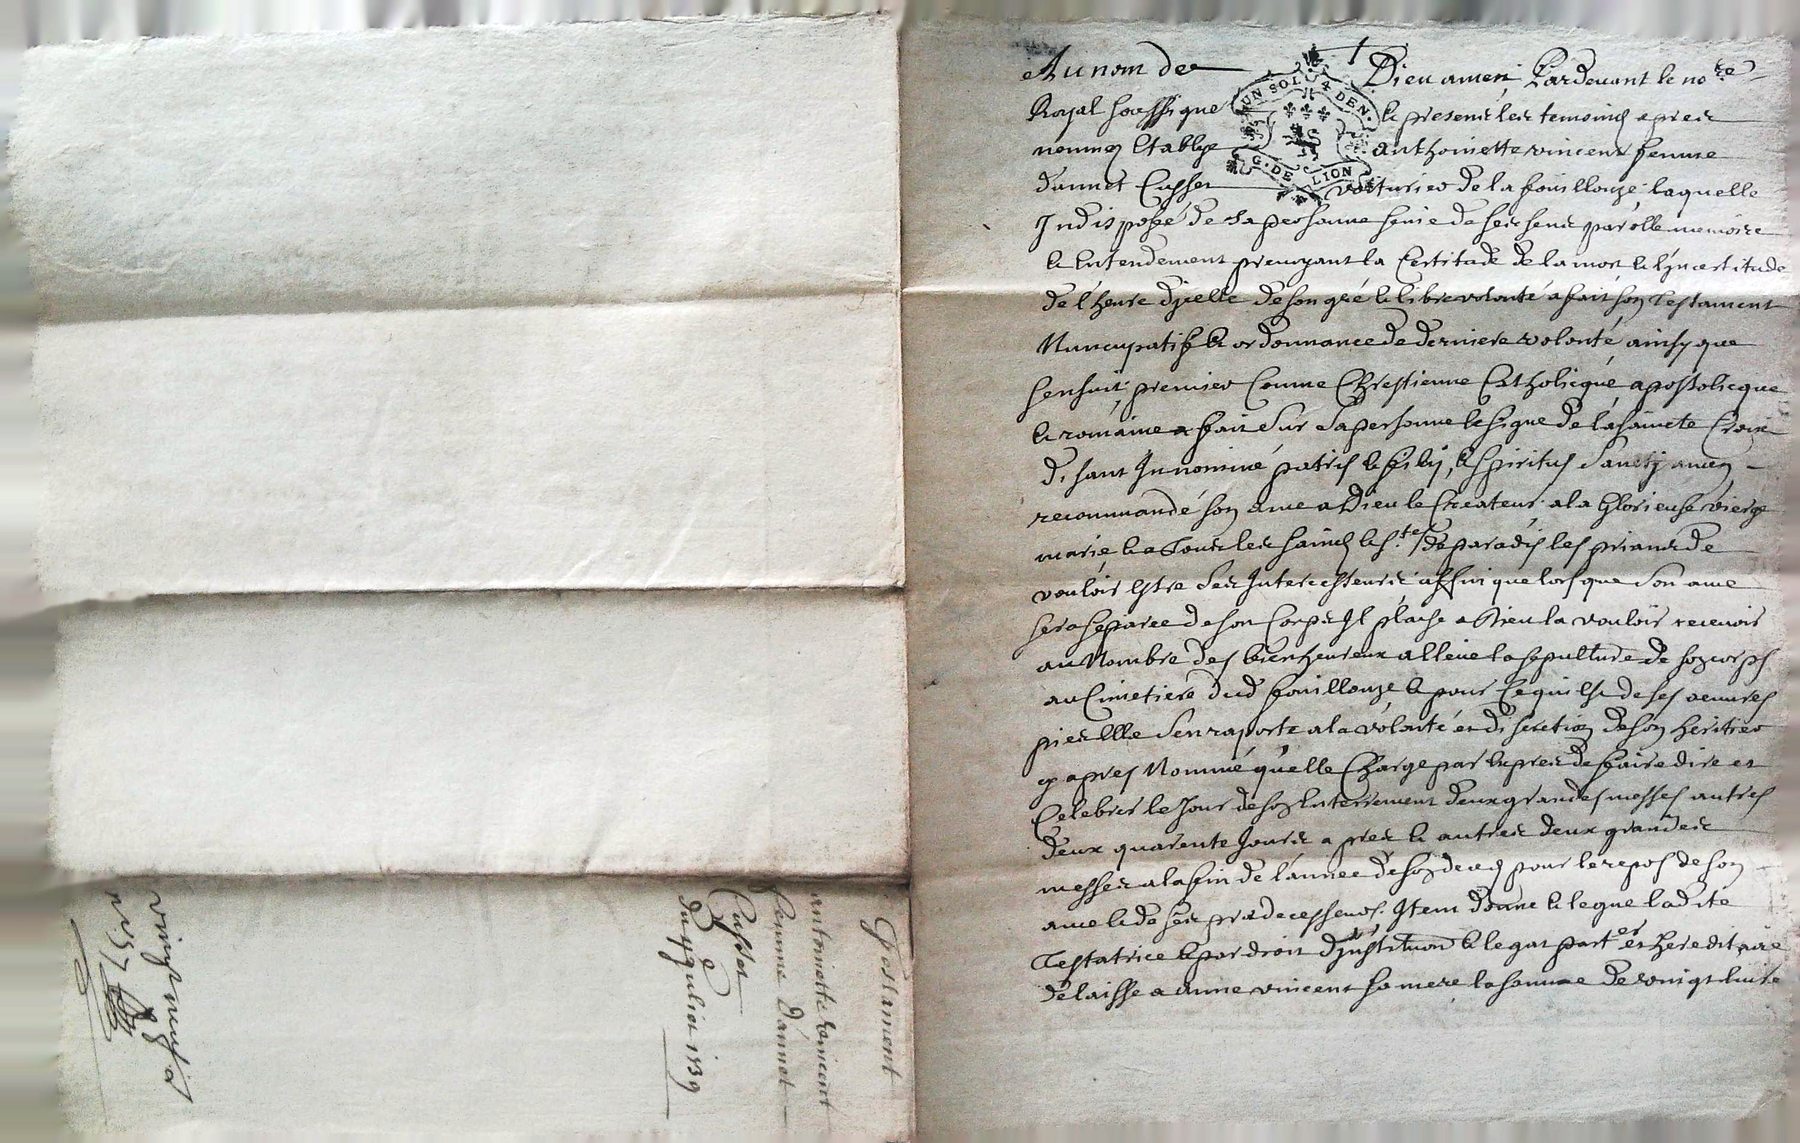 Au nom de Dieu amen Pardevant le no.re
Royal soussigné & presents les temoins apres
nommez Establye anthoinette vincent femme
dannet Cusset voiturier de la fouillouze laquelle
Indisposée de sa personne senie de ses sens parolle memoire
& Entendement prevoyant la Certitude de la mort & lincertitude
de l'heure dicelle de son gré & libre volonté a fait son testament
Nuncupatif & ordonnance de derniere volonté ainsy que
sensuit, premier Comme Chrestienne Catholicque apostolicque
& romaine a fait sur sa personne le signe de la sainte Croix
disant In nominé patris & filij, & spiritus sanctj amen
recommandé son ame a Dieu le Createur, a la Glorieuse vierge
marie & a Tous les saincts & s.tes de paradis les priants de
vouloir Estre ses Intercesseurs affin que lors que son ame
sera separée de son Corps Il plaise a Dieu la vouloir recevoir
au Nombre des bienheureux a Eleüe la sepulture de son corps
au Cimetiere dud fouillouze & pour Ce qui Est de ses oeuvres
pies Elle sen raporte a la volonté et discretion de son heritier
cy apres Nommé qu'elle Charge par Expres de faire dire et
Celebrer le Jour de son Enterrement deux grandes messes autres
deux quarente Jours apres & autres deux grandes
messes a la fin de l'année de son deced pour le repos de son
ame & de ses predecesseurs. Item donne & legue ladite
Testatrice & par droit d'institution & legat part.er et hereditaire
delaisse a anne vincent sa mere la somme de vingt huit
Testament
antoinette vincent
femme dannet
Cusset
Du 9 Juliet 1739
vingt neuf
n.o 37